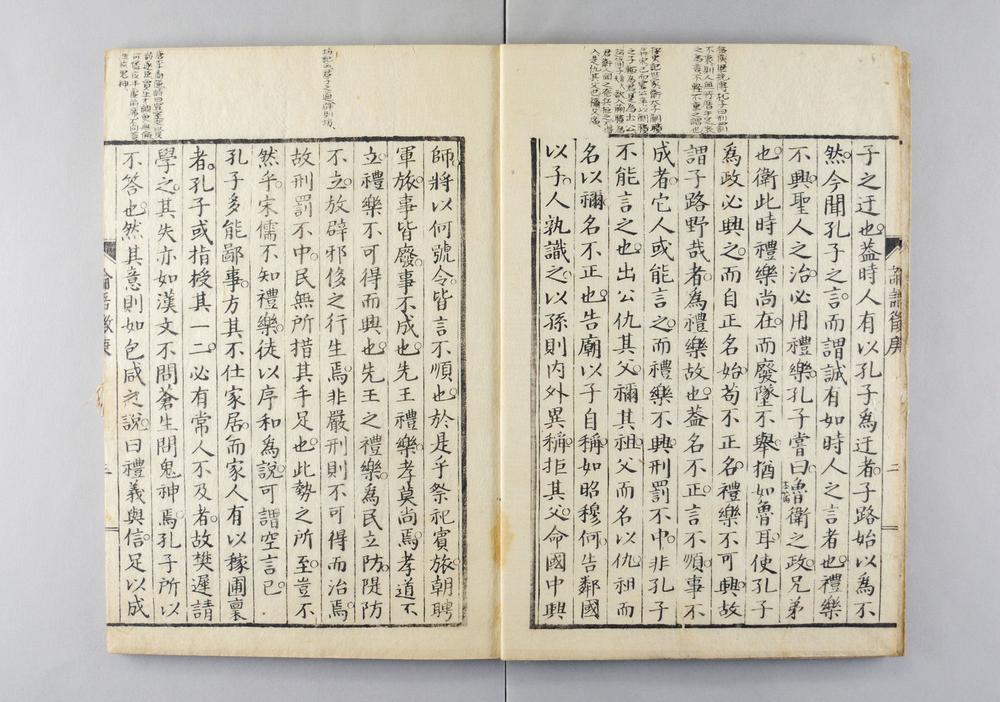 子之迂也蓋時人有以孔子為迂者子路始以為不
然今聞孔子之言而謂誠有如時人之言者也禮樂
不興聖人之治必用禮樂孔子嘗曰魯衛之政兄弟
也衛此時禮樂尚在而廢墜不舉猶如魯耳使孔子
為政必興之而自正名始苟不正名禮樂不可興故
謂子路野哉者為禮樂故也蓋名不正言不順事不
成者它人或能言之而禮樂不興刑罰不中非孔子
不能言之也出公仇其父禰其祖父而名以仇祖而
名以禰名不正也告廟以子自稱如昭穆何告鄰國
以子人孰識之以孫則內外異稱拒其父命國中興
師將以何號令皆言不順也於是乎祭祀賓旅朝聘
軍旅事皆廢事不成也先王禮樂孝莫尚焉孝道不
立禮樂不可得而興也先王之禮樂為民立防隄防
不立放辟邪侈之行生焉非嚴刑則不可得而治焉
故刑罰不中民無所措其手足也此勢之所至豈不
然乎宋儒不知禮樂徒以序和為說可謂空言已
孔子多能鄙事方其不仕家居而家人有以稼圃稟
者孔子或指授其一二必有常人不及者故樊遲請
學之其失亦如漢文不問蒼生問鬼神焉孔子所以
不答也然其意則如包咸之說曰禮義與信足以成
論語徵庚
二